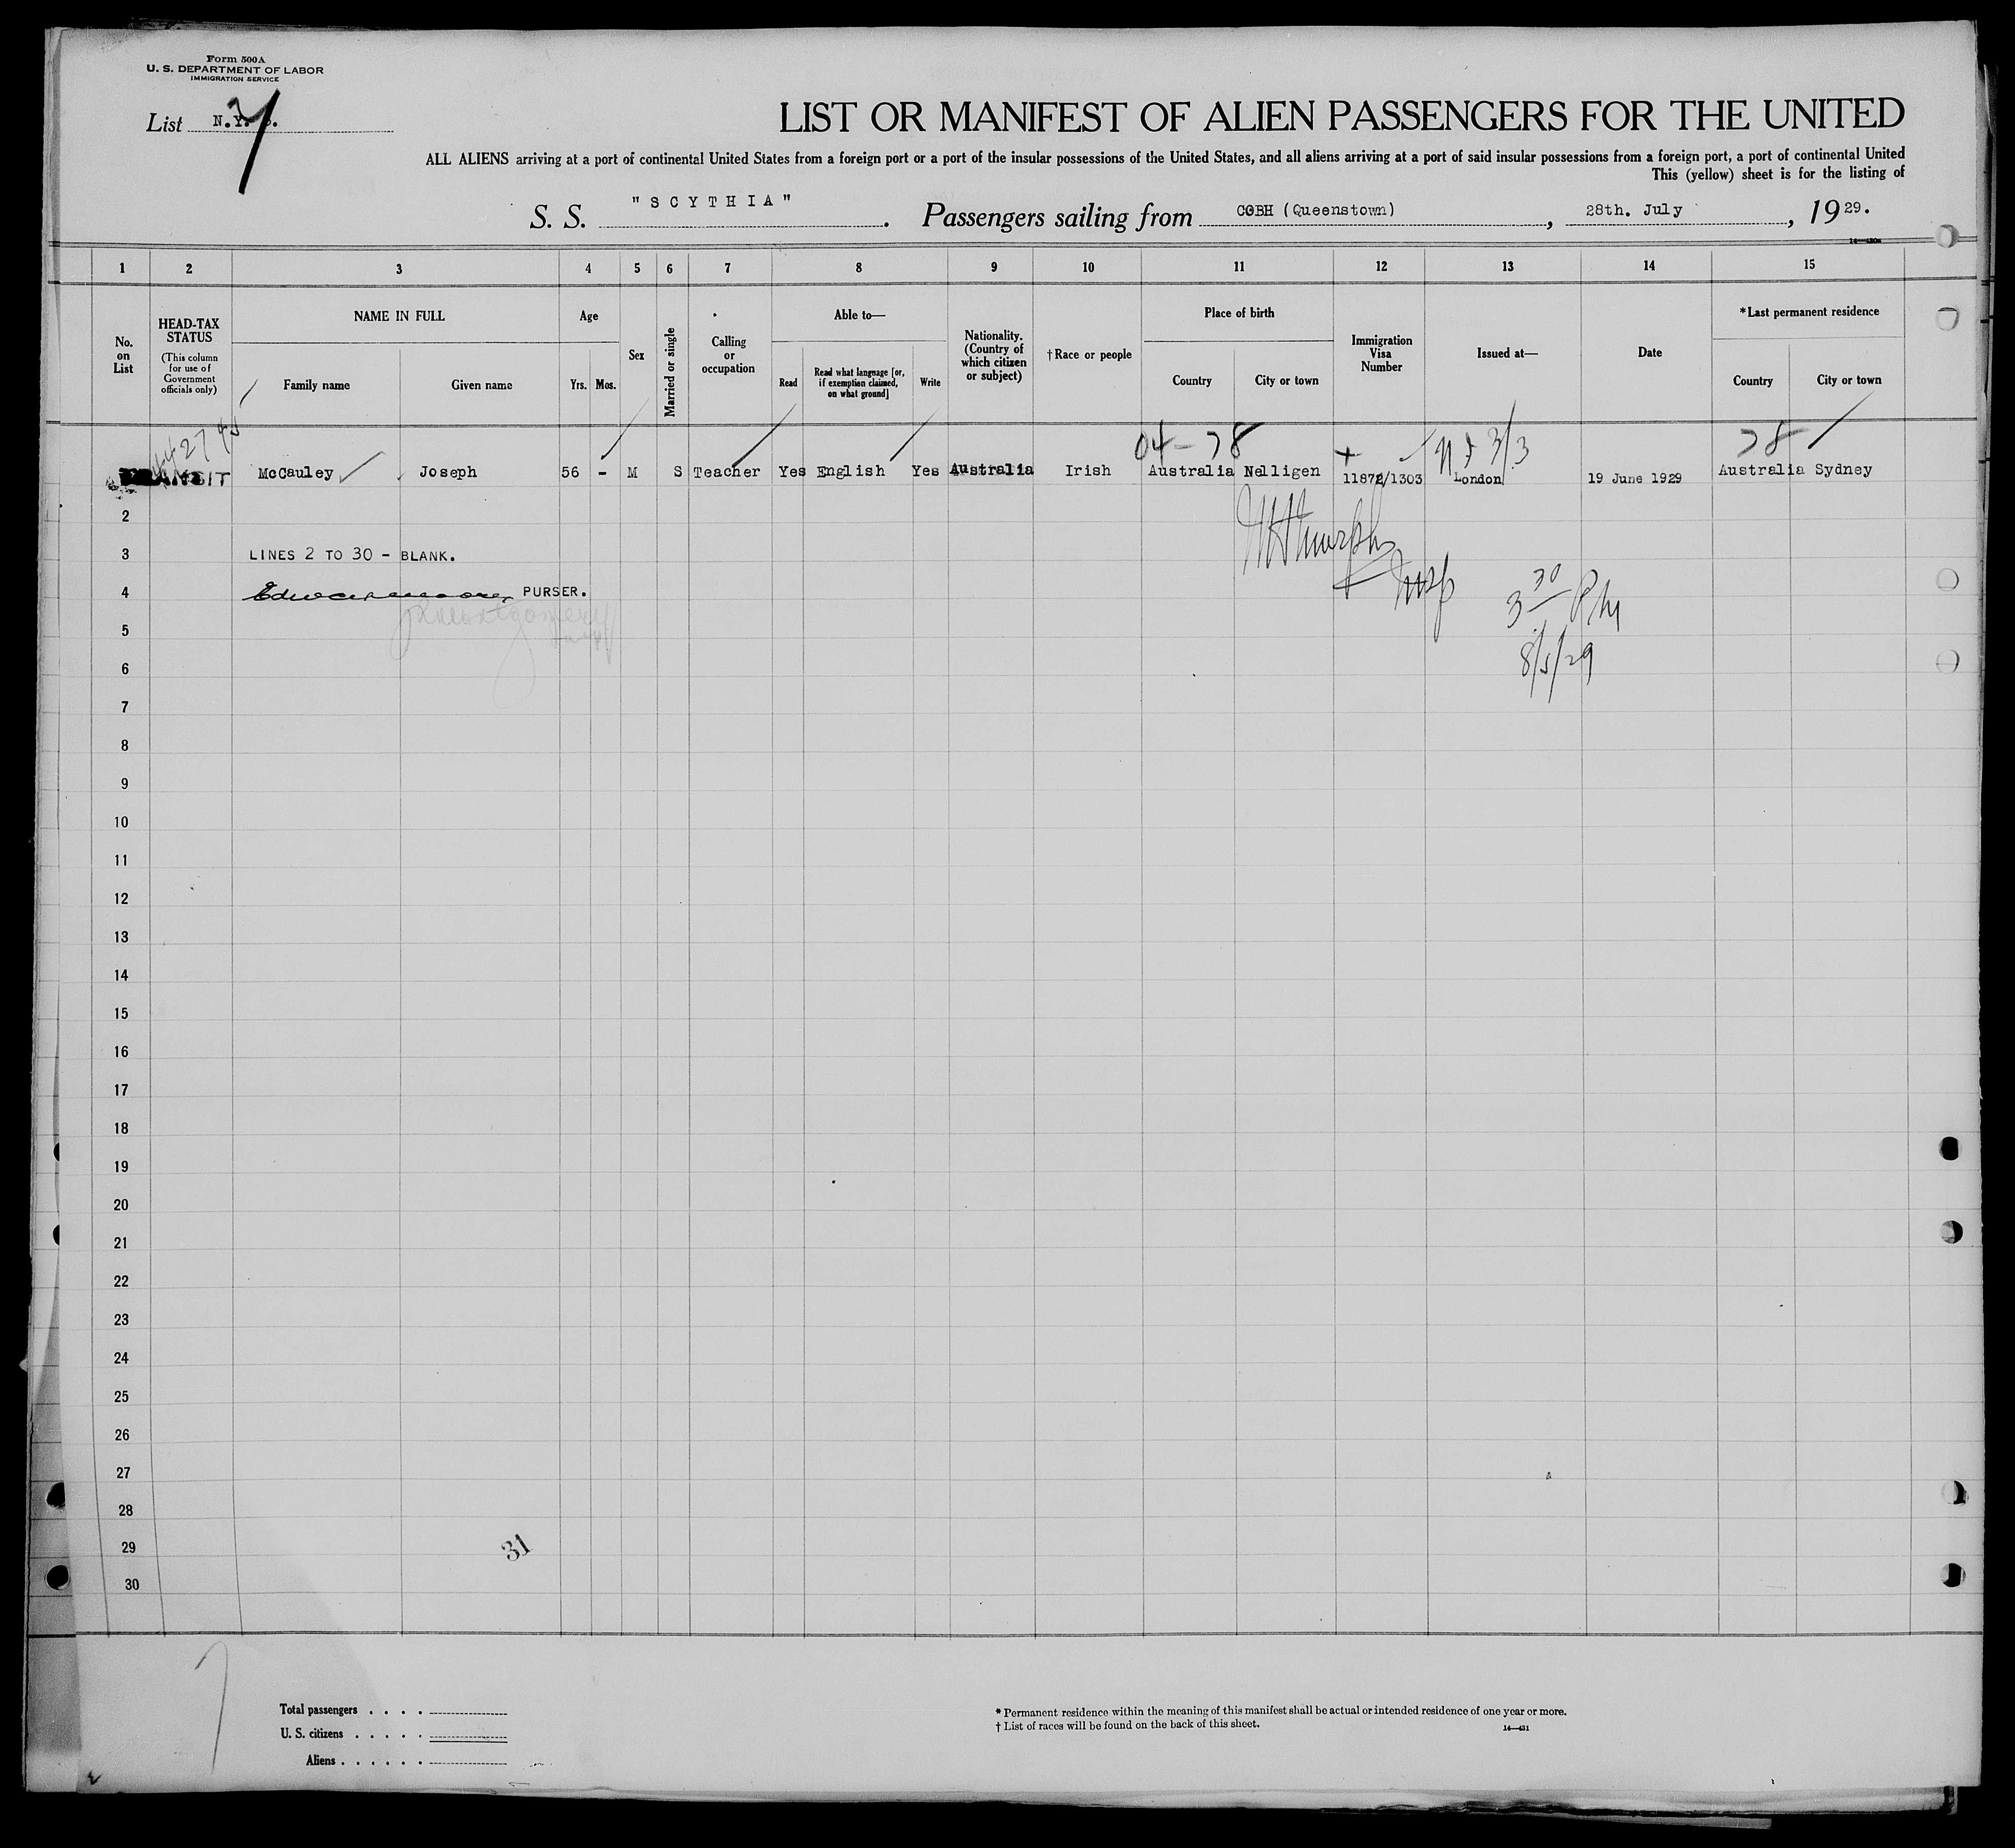 Form 500A
U. S. DEPARTMENT OF LABOR
IMMIGRATION SERVICE
List N.Y. 7
LIST OR MANIFEST OF ALIEN PASSENGERS FOR THE UNITED
ALL ALIENS arriving at a port of continental United States from a foreign port or a port of the insular possessions of the United States, and all aliens arriving at a port of said insular possessions from a foreign port, a port of continental United
This (yellow) sheet is for the listing of
S. S. "SCYTHIA". Passengers sailing from COBH (Queenstown), 28th. July, 1929.
1 2 3 4 5 6 7 8 9 10 11 12 13 14 15
No. on List
HEAD-TAX STATUS
(This column for use of Government officials only)
NAME IN FULL
Family name Given name
Age
Yrs. Mos.
Sex
Married or single
Calling or occupation
Able to—
Read Read what language [or, if exemption claimed, on what ground] Write
Nationality. (Country of which citizen or subject)
†Race or people
Place of birth
Country City or town
Immigration Visa Number
Issued at—
Date
*Last permanent residence
Country City or town
04-78 3/3 78
TRANSIT McCauley Joseph 56 - M S Teacher Yes English Yes Australia Irish Australia Nelligen 11872/1303 London 19 June 1929 Australia Sydney
2
3 LINES 2 TO 30 - BLANK.
4 PURSER.
3 30 PM
5
8/5/29
6
7
8
9
10
11
12
13
14
15
16
17
18
19
20
21
22
23
24
25
26
27
28
29 31
30
7
Total passengers . . . .
U. S. citizens . . . . .
Aliens . . . . . .
* Permanent residence within the meaning of this manifest shall be actual or intended residence of one year or more.
† List of races will be found on the back of this sheet.
14—431